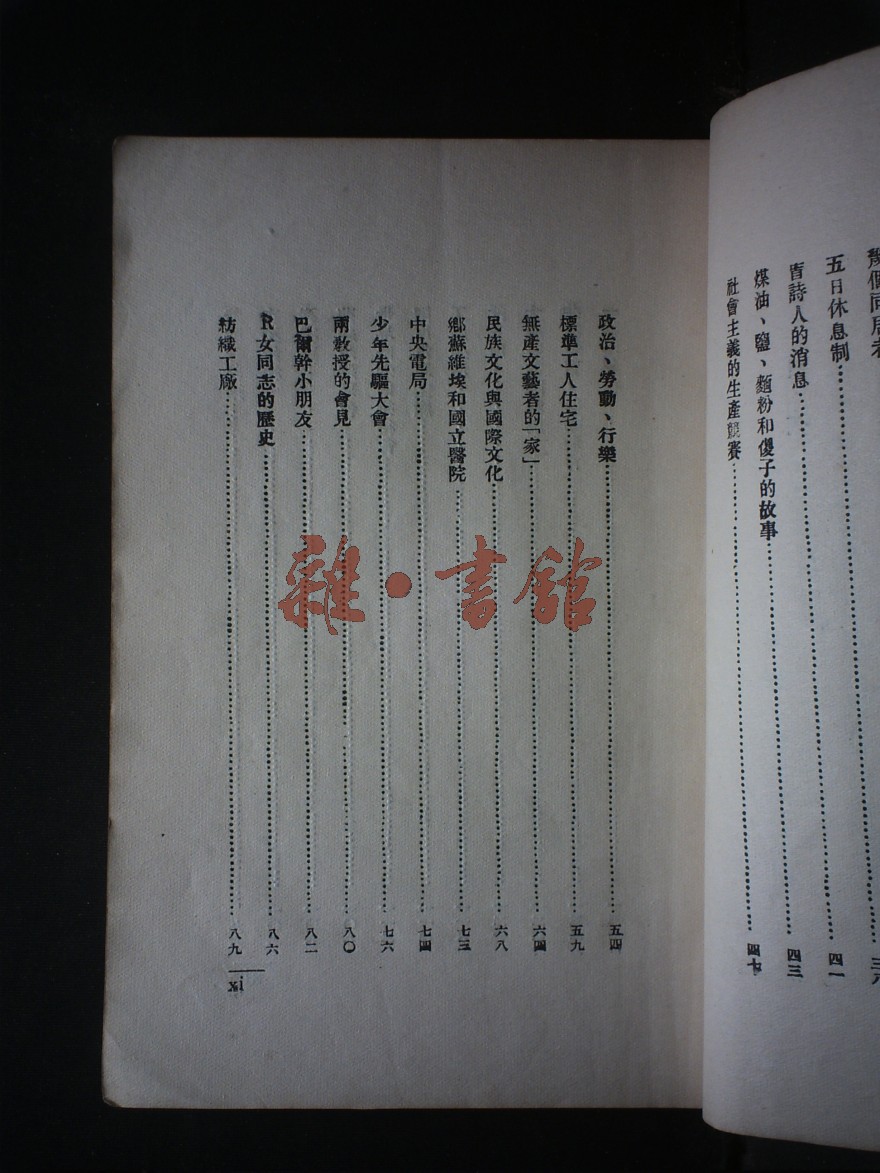 五日休息制 四一
盲詩人的消息 四三
煤油、鹽、麵粉和儍子的故事
社會主義的生產競賽 四七
政治、勞動、行樂 五四
標準工人住宅 五九
無產文藝者的「家」 六四
民族文化與國際文化 六八
鄉蘇維埃和國立醫院 七三
中央電局 七四
少年先驅大會 七六
兩教授的會見 八〇
巴爾幹小朋友 八二
R女同志的歷史 八六
紡織工廠 八九
xi
雜·書館